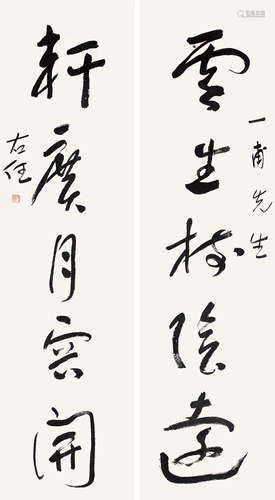 一甫先生
雲生樹陰遠
軒廣月容開
右任